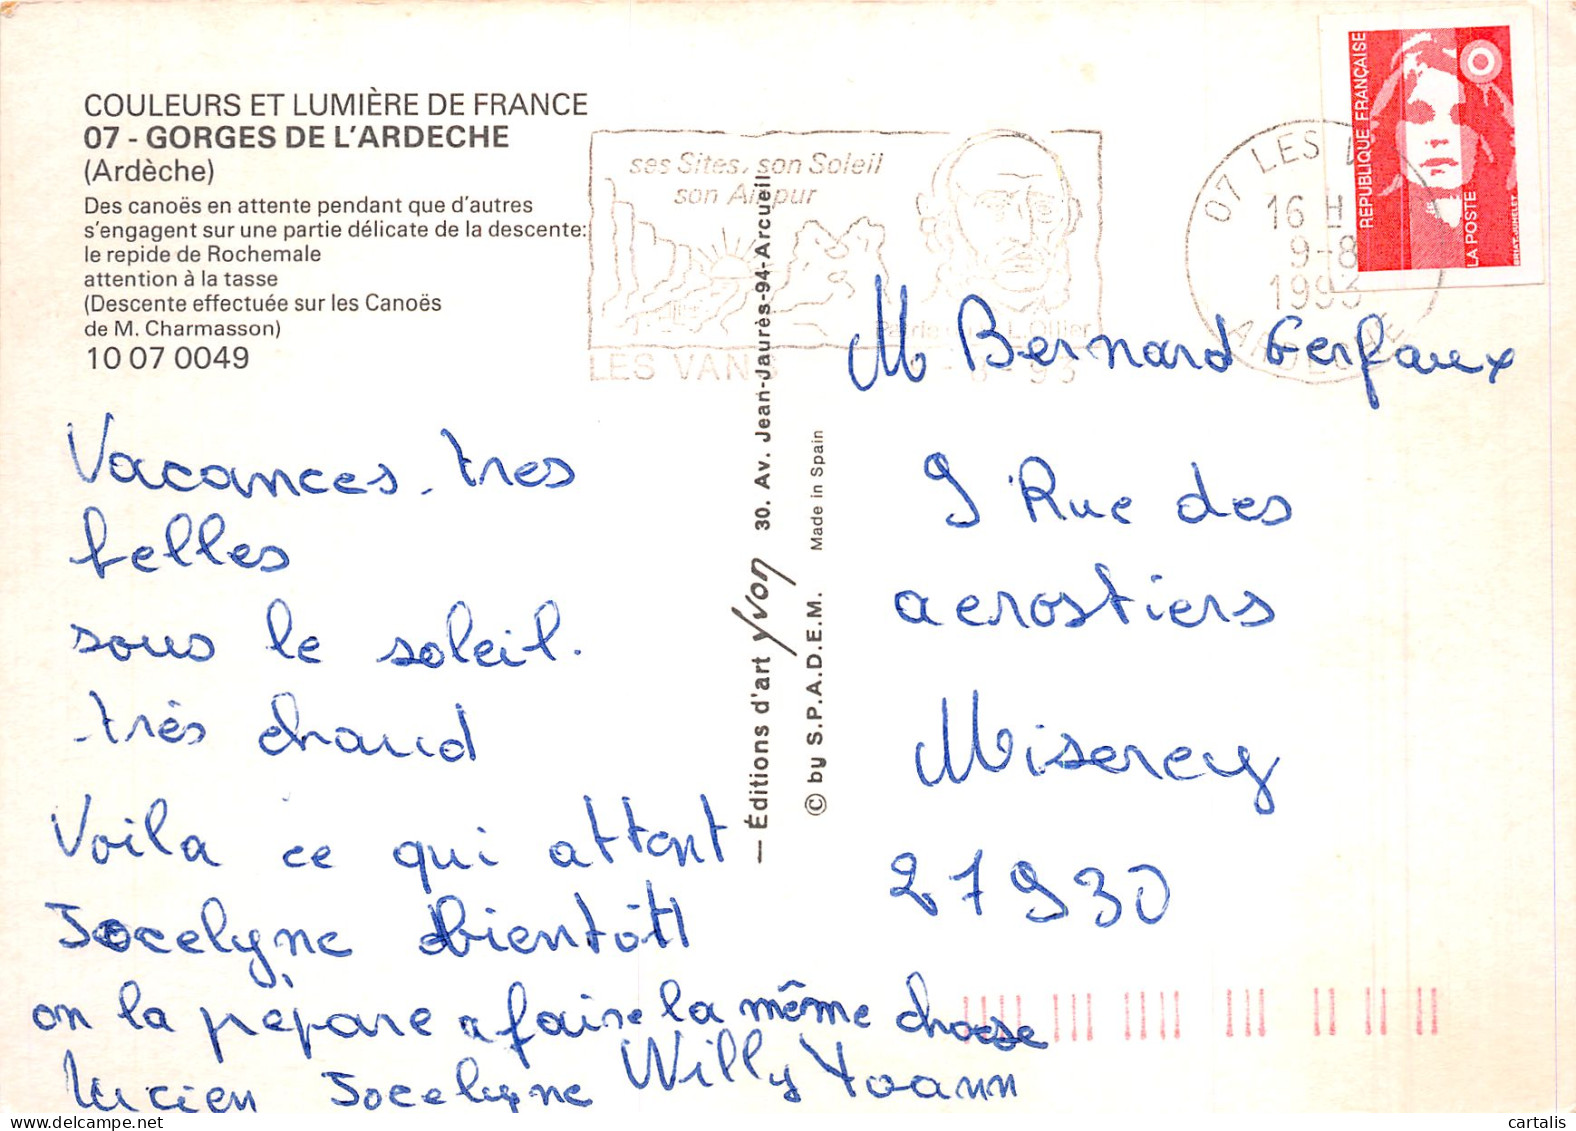 COULEURS ET LUMIÈRE DE FRANCE
07 - GORGES DE L'ARDECHE
(Ardèche)
Des canoës en attente pendant que d'autres
s'engagent sur une partie délicate de la descente:
le repide de Rochemale
attention à la tasse
(Descente effectuée sur les Canoës
de M. Charmasson)
10 07 0049
Vacances très
belles
sous le soleil.
très chaud
Voila ce qui attent
Jocelyne bientôt
on la prépare a faire la même chose
Lucien Jocelyne Willy Yoann
— Éditions d'art Yvon 30. Av. Jean-Jaurès-94-Arcueil
© by S.P.A.D.E.M. Made in Spain
ses Sites, son Soleil
son Air pur
Patrie L. Ollier
LES VANS
07 LES
16 H
9-8
1993
ARDECHE
RÉPUBLIQUE FRANÇAISE
LA POSTE
BRIAT-JUMELET
M Bernard Gerfaux
9 Rue des
aerostiers
Miserey
27930
cartalis